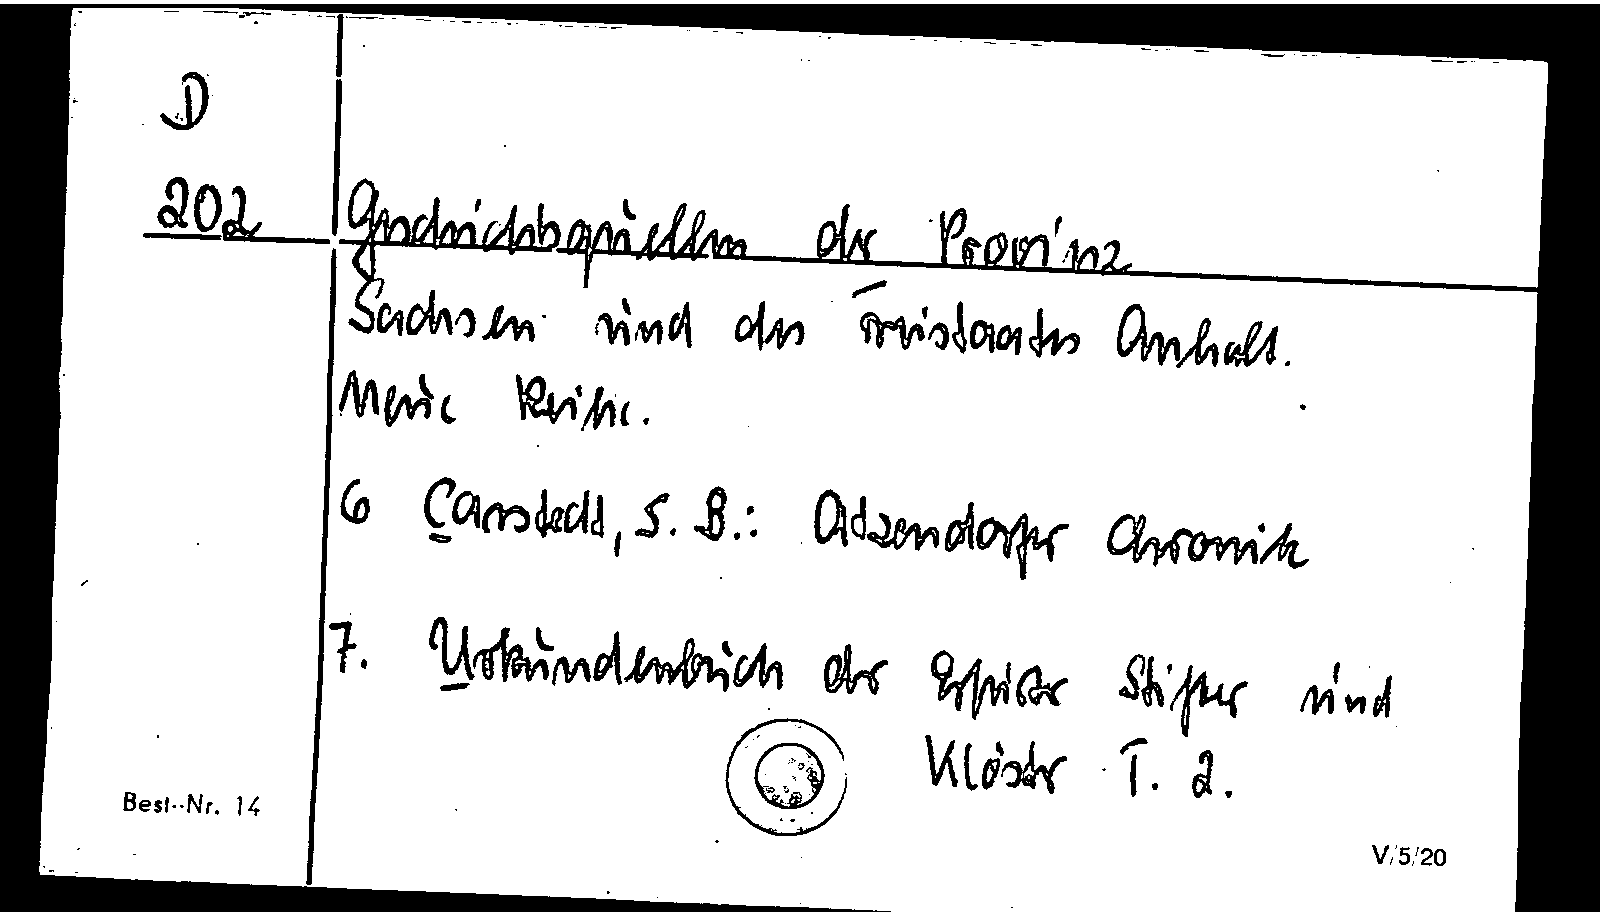 D
202
Geschichtsquellen der Provinz
Sachsen und des Freistaates Anhalt.
Neue Reihe.
6 Carstedt, S. B.: Atzendorfer Chronik
7. Urkundenbuch der Erfurter Stifter und
Klöster T. 2.
Best.-Nr. 14
V/5/20